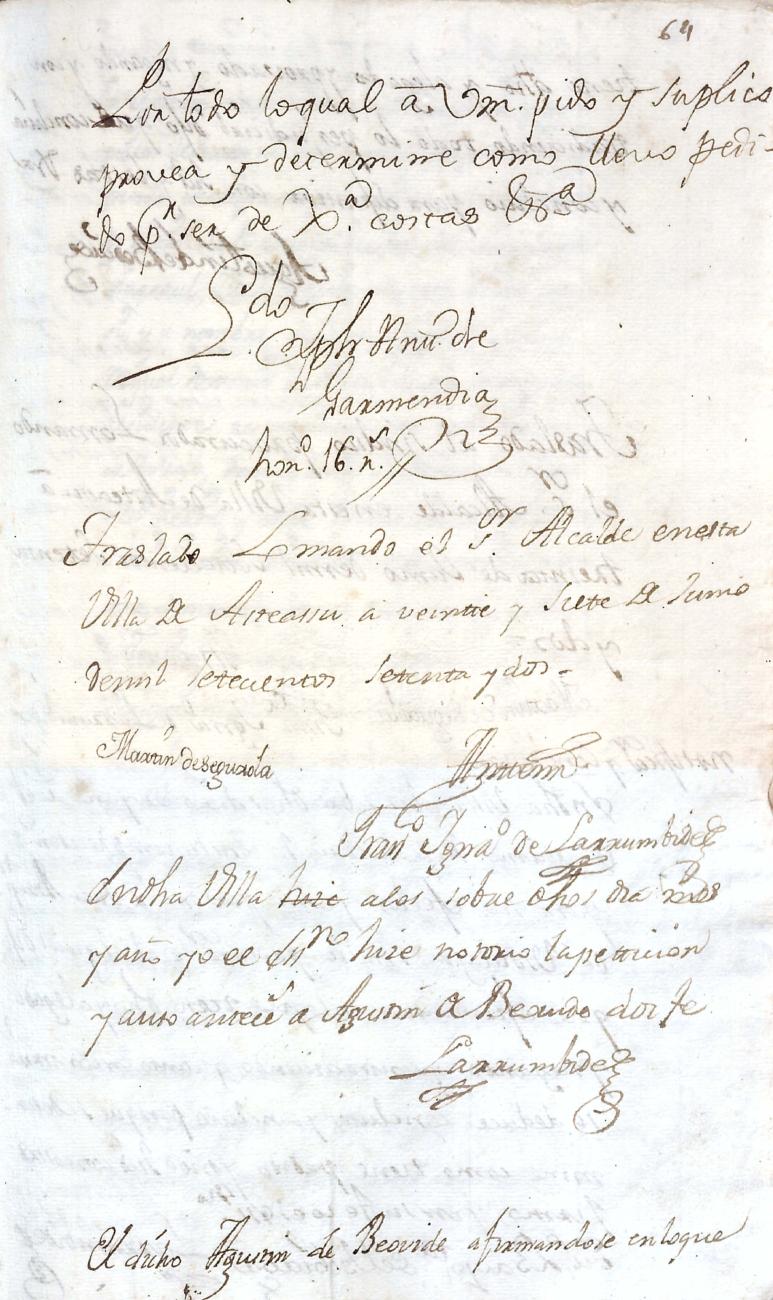 64
Con todo lo qual a Vm. pido y suplico
provea y determine como llevo pedi-
do pr. ser de Xa. costas &ra
Ldo
Jph Anto. de
Garmendia
hono. 16 rs.
Traslado Lo mando el Sor Alcalde en esta
Villa de Asteassu a veinte y siete de Junio
de mil setecientos setenta y dos-
Martin de Segurola
Antemi
Franco Ignao de Larrumbide
En dha Villa hize a los sobre dhos dia mes
y año yo el Essno hize notorio la peticion
y auto antecte a Agustin de Beovide doi fe
Larrumbide
El dicho Agustin de Beovide afirmandose en loque